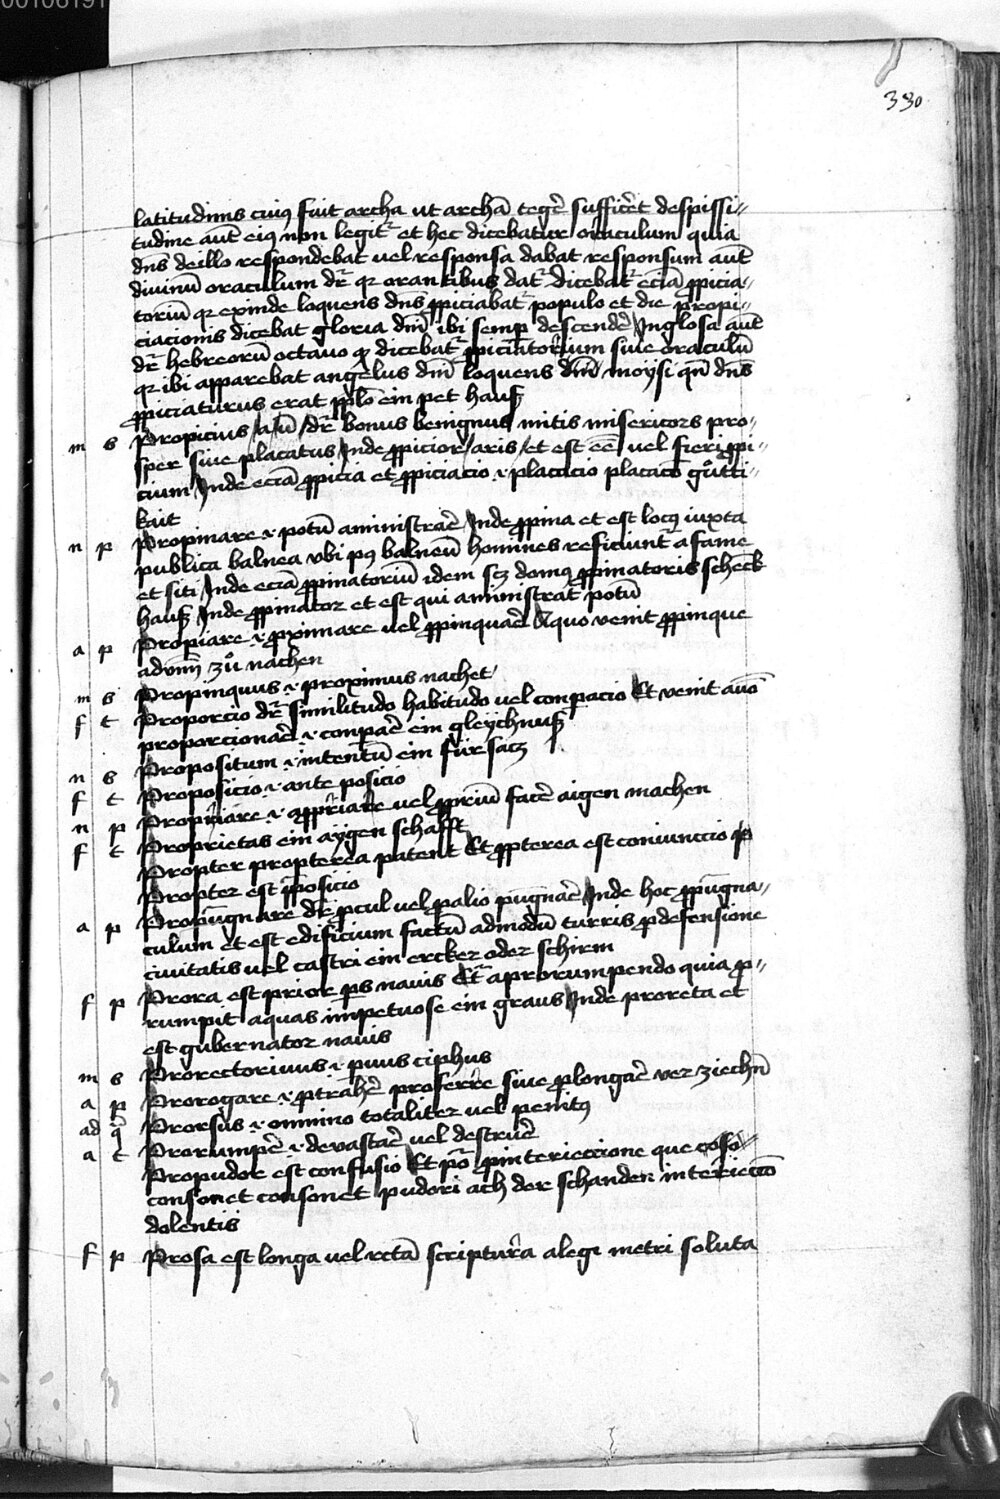 00106191
330
latitudinis cuiꝰ fuit archa ut archā tegēt sufficēt despissi〃
tudine aūt eiꝰ non legit᷑ et hec dicebatur oraculum quia
dn̄s deillo respondebat uel responsa dabat responsum aūt
diuinū oraculum dr̄ qꝛ orantibus dat᷑ dicebat᷑ eciā ꝓpicia〃
toriū qꝛ exinde loquens dn̄s ꝓpiciabat᷑ populo et die propi〃
ciacionis dicebat gloria dn̄i ibi semꝑ descende᷑ Inglosa aūt
dr̄ hebreorū octauo qꝛ dicebat᷑ ꝓpiciatorium siue oraculū
qꝛ ibi apparebat angelus dn̄i loquens moysi qn̄ dn̄s
ꝓpiciaturus erat ꝓplō ein pet hauß
m s Propicius /a/ū/ dr̄ bonus benignus mitis misericors pro〃
sper siue placatus Inde ꝓpicior /aris/ et est eē uel fieri ꝓpi〃
cium Inde eciā ꝓpicia et ꝓpiciacio .i. placacio placatō gůtti〃
kait
n p Propinare .i. potū aministrar̄ Inde ꝓpina et est locꝰ iuxta
publica balnea vbi pꝰ balneū homines reficiunt᷑ a fame
et siti Inde eciā ꝓpinatoriū idem scꝫ domꝰ ꝓpinatoris schenck
hauß Inde ꝓpinator et est qui aministrat potū
a p Propiare .i. ꝓximare uel ꝓpinquar̄ A quo venit ꝓpinque
zů nachen
m s Propinquus .i. proximus nachet
f t Proporcio dr̄ similitudo habitudo uel conpacio Et venit
proporcionar̄ .i. conpar̄ ein gleychnuß
n s Propositum .i. intentū ein fürsacz
f t Proposicio .i. ante posicio
n p Propriare .i. appropriare uel ꝓpriū facē aigen machen
f t Proprietas ein aygen schafft
Propter propterea patent Et ꝓpterea est coniunccio ꝫ
Propter est p̄posicio
a p Propugnare dr̄ ꝓcul uel ꝓalio pugnar̄ Inde hoc ꝓpugna〃
culum et est edificium factū admodū turris ꝓdefensione
ciuitatis uel castri ein ercker oder schirm
f p Prora est prior ꝑs nauis Et᷑ aprorumpendo quia ꝓ〃
rumpit aquas impetuose ein grans Inde proreta et
est gubernator nauis
m s Prorectoriuus .i. puus ciphus
a p Prorogare .i. ꝓtrahē proferre siue ꝓlongar̄ ver ziechn̄
ad q Prorsus .i. omnino totaliter uel penitꝰ
a t Prorumpe᷑ .i. deuastar̄ uel destruē
Propudor est confusio Et pō ꝓinterieccione que coſo〃
consonet consonet pudori ach der schanden interieccō
dolentis
f p Prosa est longa uel rectā scriptura a lege metri soluta